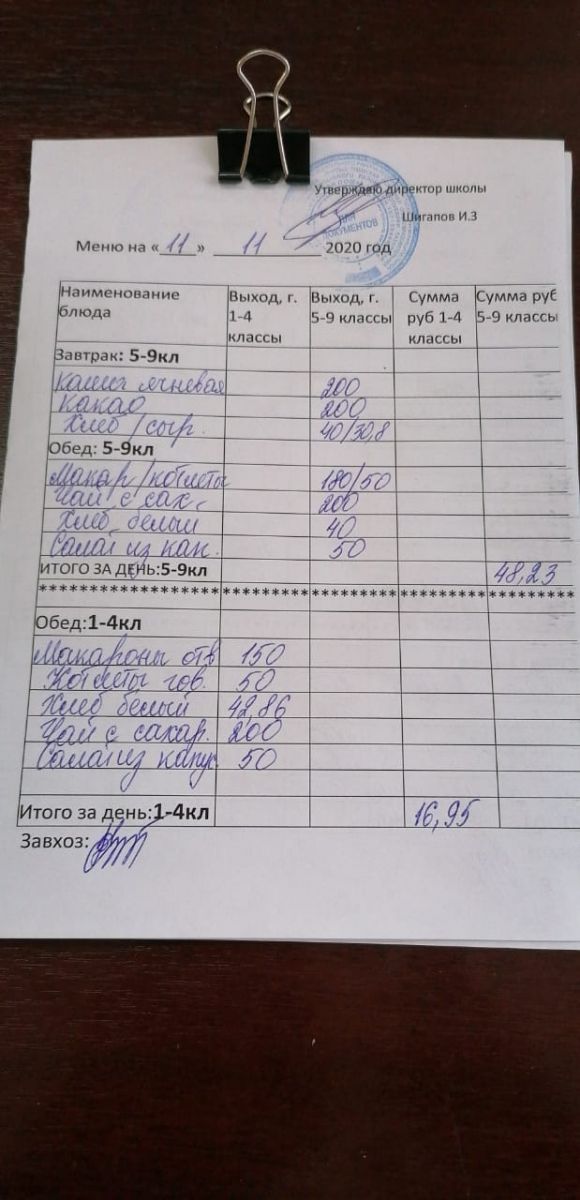 Утверждаю директор школы
Шигапов И.З
ДЛЯ ДОКУМЕНТОВ
Меню на «11» 11 2020 год
Наименование блюда Выход, г. 1-4 классы Выход, г. 5-9 классы Сумма руб 1-4 классы Сумма руб 5-9 классы
Завтрак: 5-9кл
Каша ячневая 200
Какао 200
Хлеб / сыр. 40/30,8
Обед: 5-9кл
Макар/котлеты 180/50
Чай с сах. 200
Хлеб белый 40
Салат из кап. 50
ИТОГО ЗА ДЕНЬ:5-9кл 48,23
Обед:1-4кл
Макароны отв 150
Котлеты гов. 50
Хлеб белый 42,86
Чай с сахар. 200
Салат из капус 50
Итого за день:1-4кл 16,95
Завхоз: